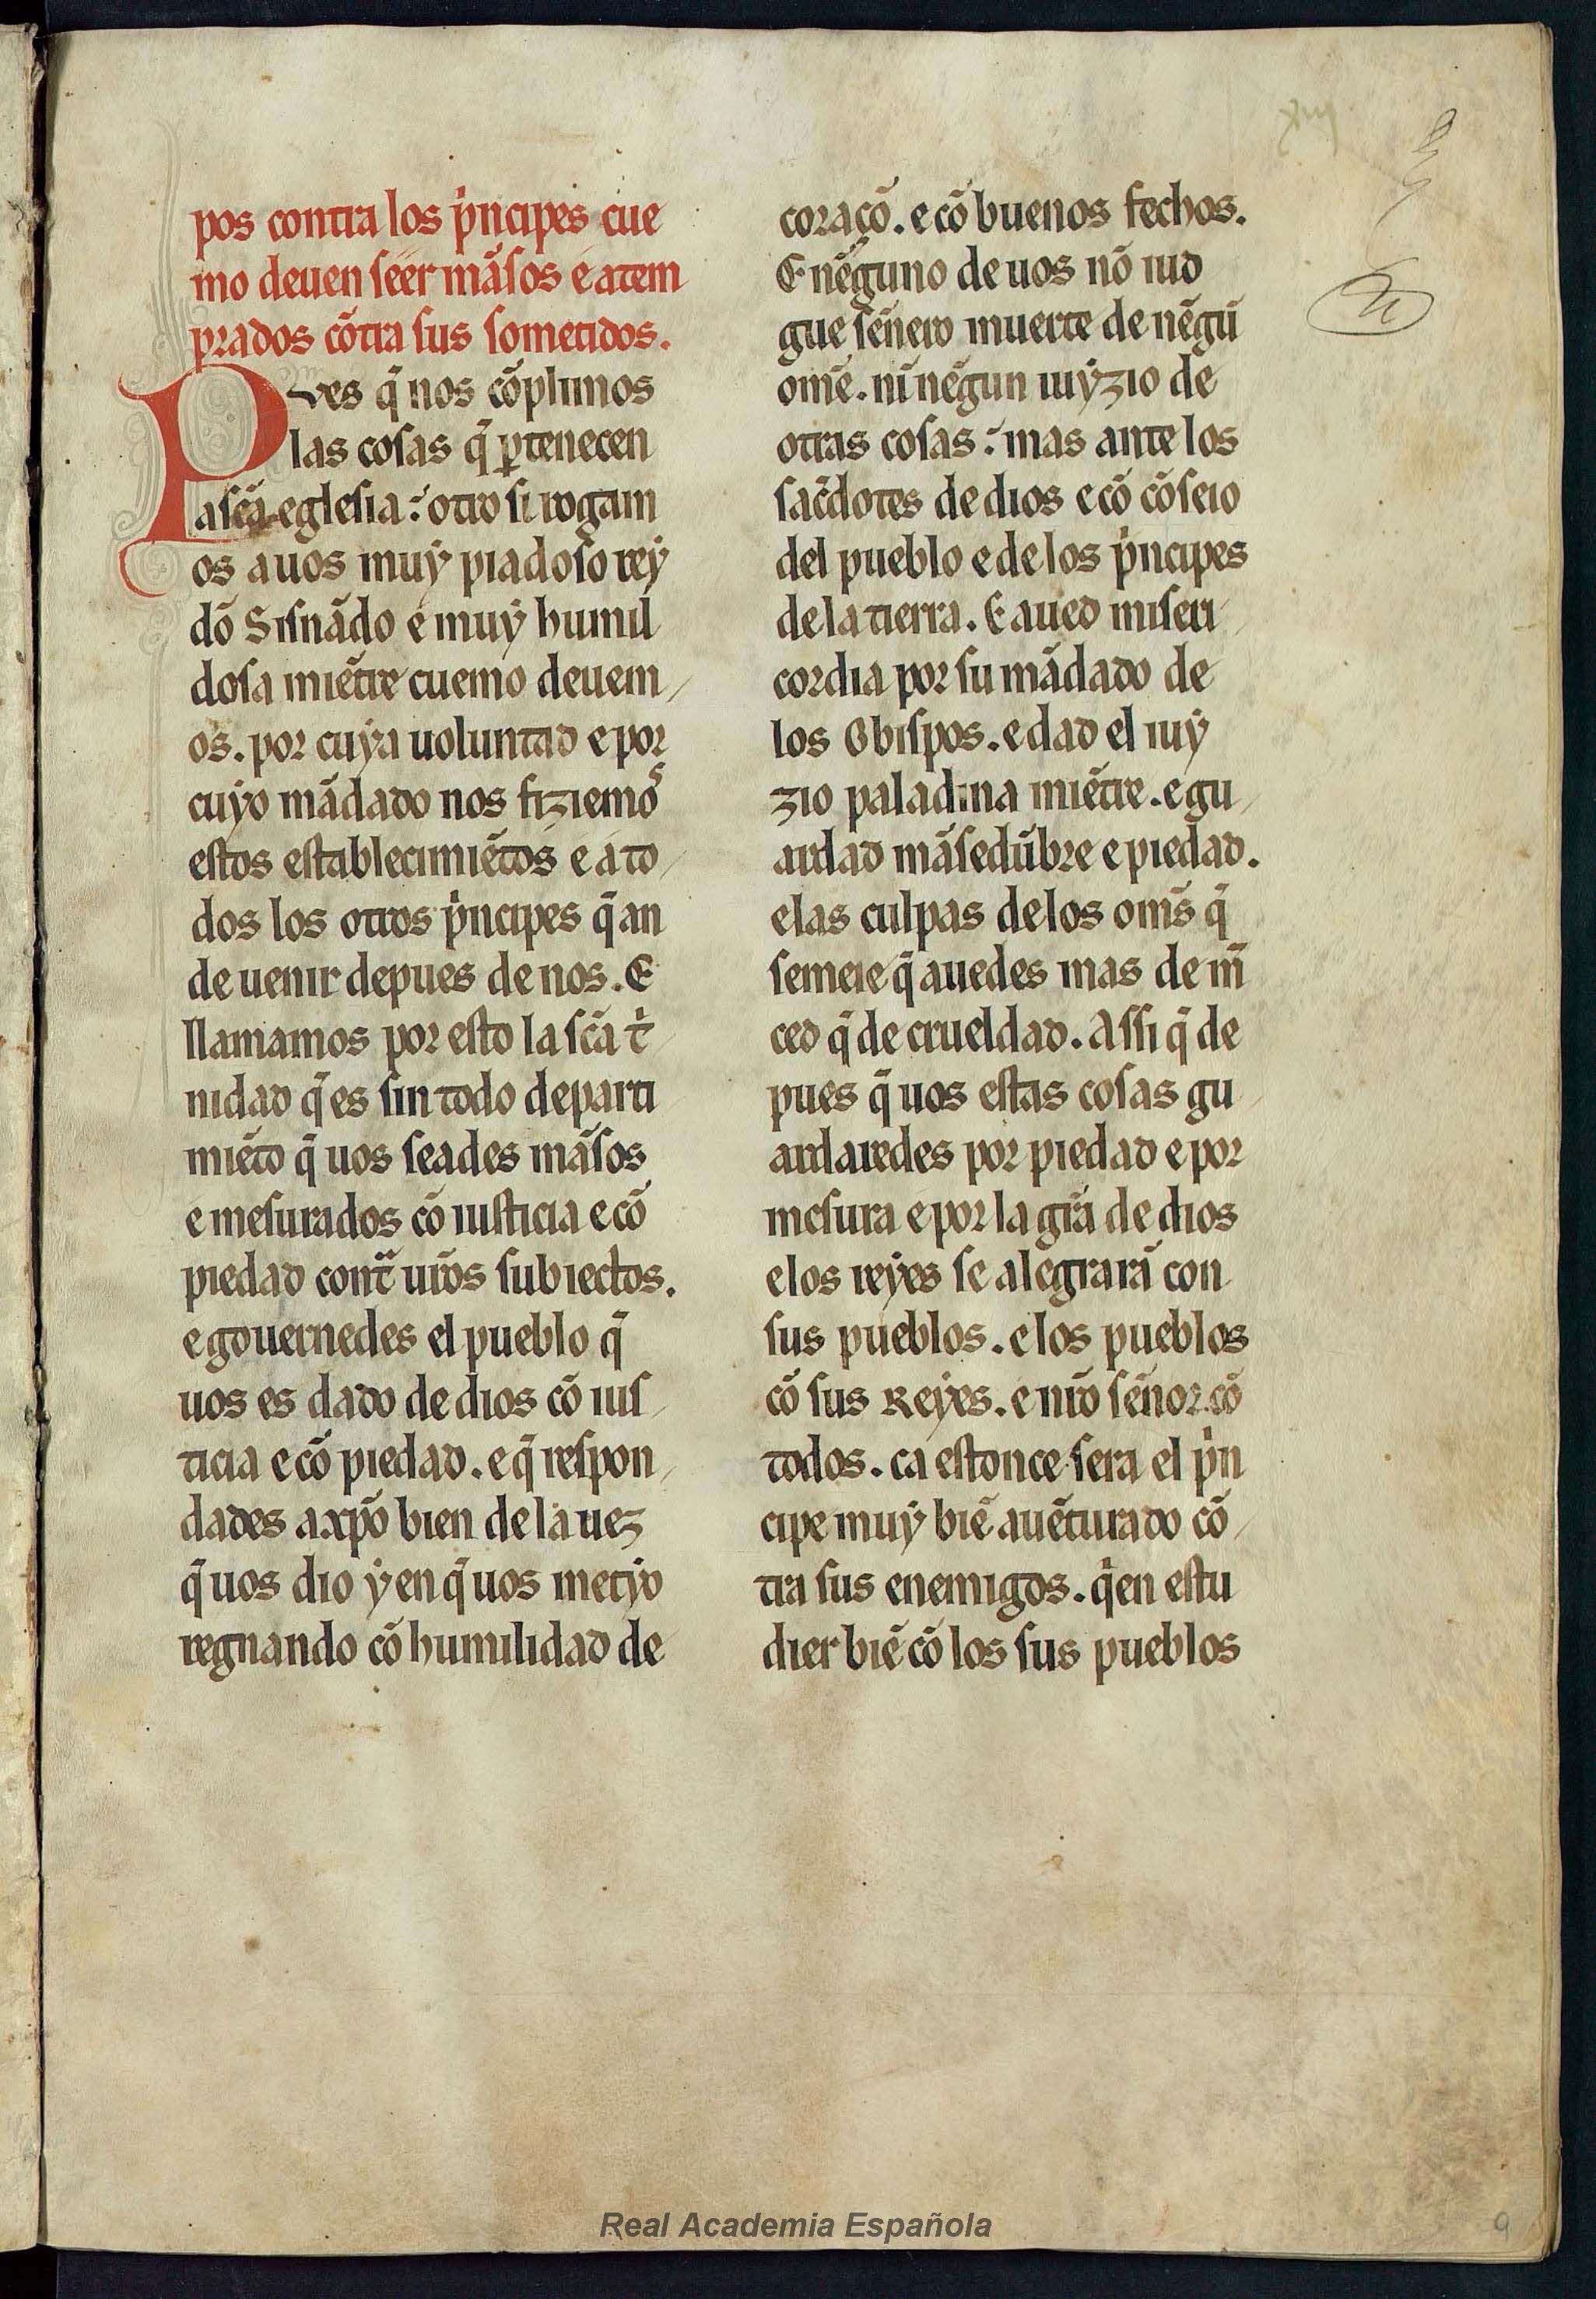 pos contra los pͥncipes cue
mo deuen seer mãsos e atem
prados cõtra sus sometidos.
Pues q̃ nos cõplimos
las cosas q̃ ꝑtenecen
a sc̃a eglesia: otro si rogam
os a uos muẏ piadoso reẏ
dõ Sisnãdo e muẏ humil
dosa miẽtre cuemo deuem
os. por cuẏa uoluntad e por
cuẏo mãdado nos fiziemos
estos establecimiẽtos e a to
dos los otros pͥncipes q̃ an
de uenir depues de nos. E
llamamos por esto la sc̃a tͥ
nidad q̃ es sin todo departi
miẽto q̃ uos seades mãsos
e mesurados cõ iusticia e cõ
piedad contͣ ur̃os subiectos.
e gouernedes el pueblo q̃
uos es dado de dios cõ ius
ticia e cõ piedad. e q̃ respon
dades a xp̃o bien de la uez
q̃ uos dio ẏ en q̃ uos metẏo
regnando cõ humilidad de
coraçõ. e cõ buenos fechos.
E nẽguno de uos nõ iud
gue sẽnero muerte de nẽgũ
om̃e. nĩ nẽgun iuẏzio de
otras cosas: mas ante los
sac̃dotes de dios e cõ cõseio
del pueblo e de los pͥncipes
de la tierra. E aued miseri
cordia por su mãdado de
los Obispos. e dad el iuẏ
zio paladina miẽtre. e gu
ardad mãsedũbre e piedad.
e las culpas de los om̃s q̃
semeie q̃ auedes mas de m̃
ced q̃ de crueldad. Assi q̃ de
pues q̃ uos estas cosas gu
ardaredes por piedad e por
mesura e por la gr̃a de dios
e los reẏes se alegrarã con
sus pueblos. e los pueblos
cõ sus Reẏes. e nr̃o sẽnor cõ
todos. ca estonce sera el pͥn
cipe muẏ biẽ auẽturado cõ
tra sus enemigos. qͥen estu
dier biẽ cõ los sus pueblos
Real Academia Española
9